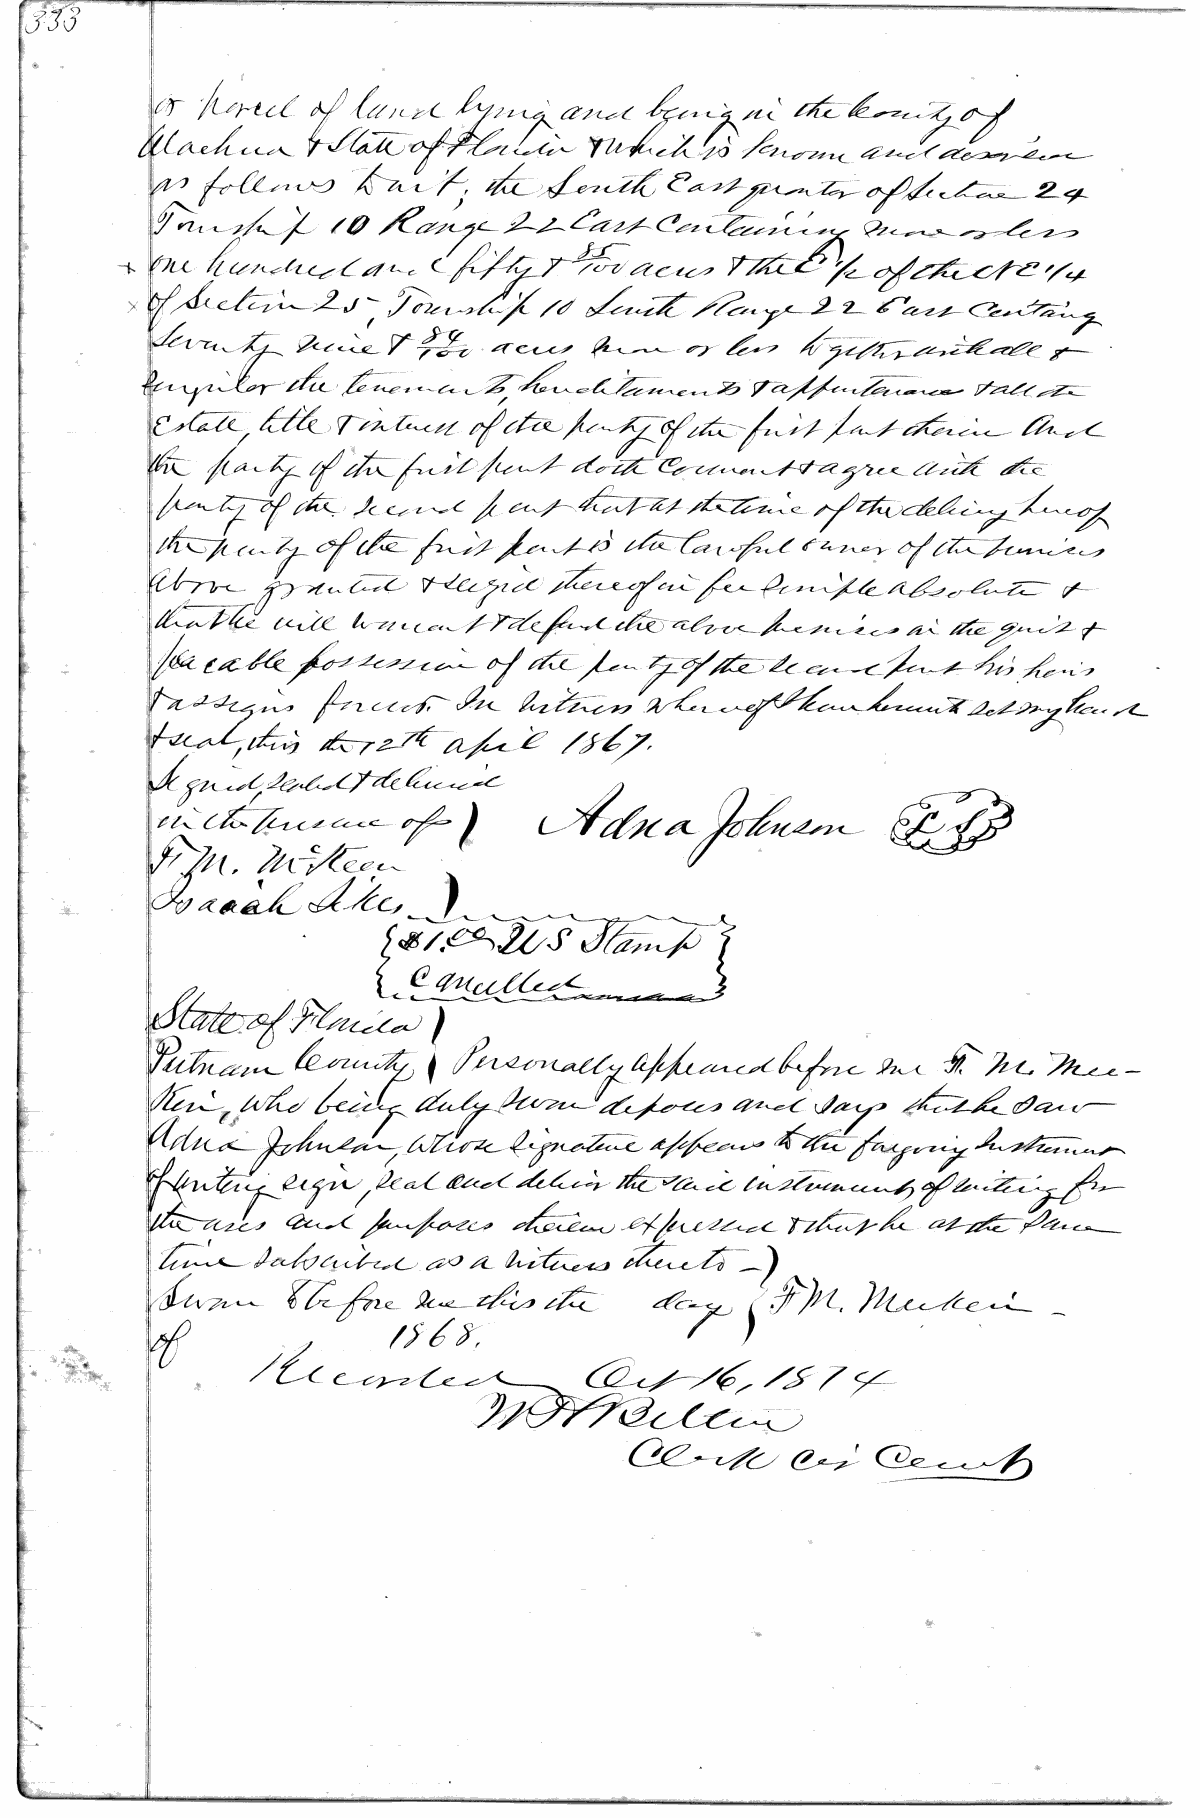 333
or parcel of land lying and being in the County of
Alachua & State of Florida & which is known and described
as follows to wit; the South East quarter of Section 24
Township 10 Range 22 East Containing more or less
one hundred and fifty & 85/100 acres & the E 1/2 of the NE 1/4
of Section 25, Township 10 South Range 22 East Containg
Seventy nine & 84/100 acres more or less together with all &
Singular the tenements, hereditaments & appurtenances & all the
Estate, title & interest of the party of the first part therein And
the party of the first part doth Covenant & agree with the
party of the second part that at the time of the delivery hereof
the party of the first part is the lawful owner of the premises
above granted & seized thereof in fee Simple absolute &
that he will warrant & defend the above premises in the quit &
peacable possession of the party of the second part his heirs
& assigns forever. In witness whereof I have hereunto set my hand
& seal, this the 12th April 1867.
Signed, sealed & delivered
in the presence of
Adna Johnson L S
F. M. McKeen
Isaaih Sikes
$1.00 U S Stamp
Cancelled
State of Florida
Putnam County Personally appeared before me F. M. Mee-
Kin, who being duly sworn deposes and says that he saw
Adna Johnson, whose signature appears to the forgoing Instrument
of writing sign, seal and deliver the said instrument of writing for
the uses and purposes therein expressed & that he at the same
time subscribed as a witness thereto —
Sworn to before me this the day F M. Meekein
of 1868.
Recorded Oct 16, 1874
Clerk Cir Court